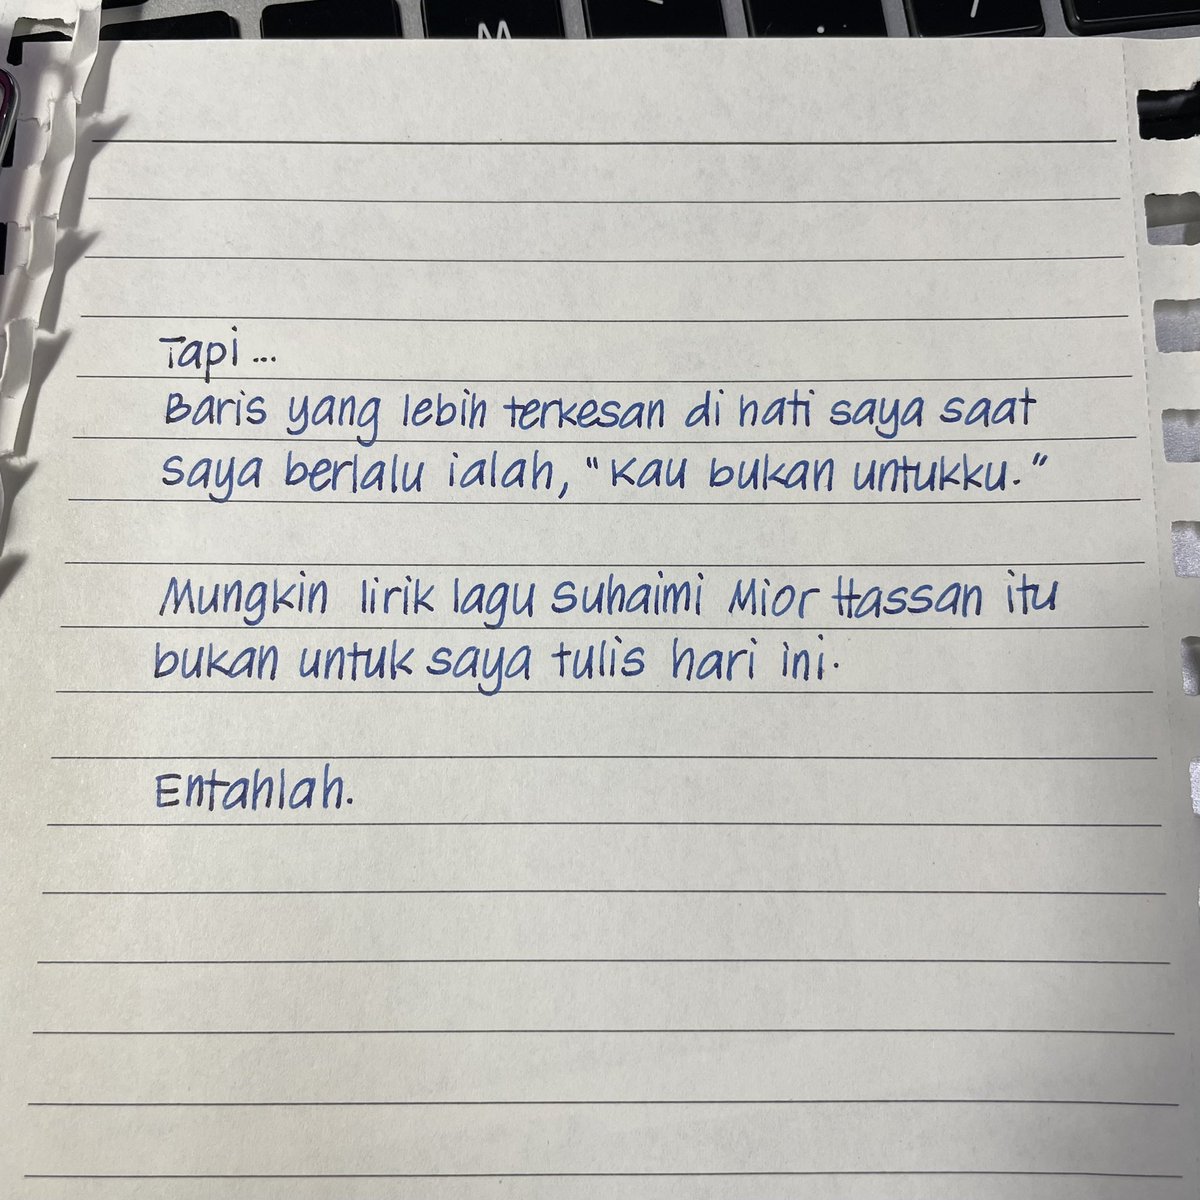 Tapi...
Baris yang lebih terkesan di hati saya saat
saya berlalu ialah, "Kau bukan untukku."
Mungkin lirik lagu Suhaimi Mior Hassan itu
bukan untuk saya tulis hari ini.
Entahlah.